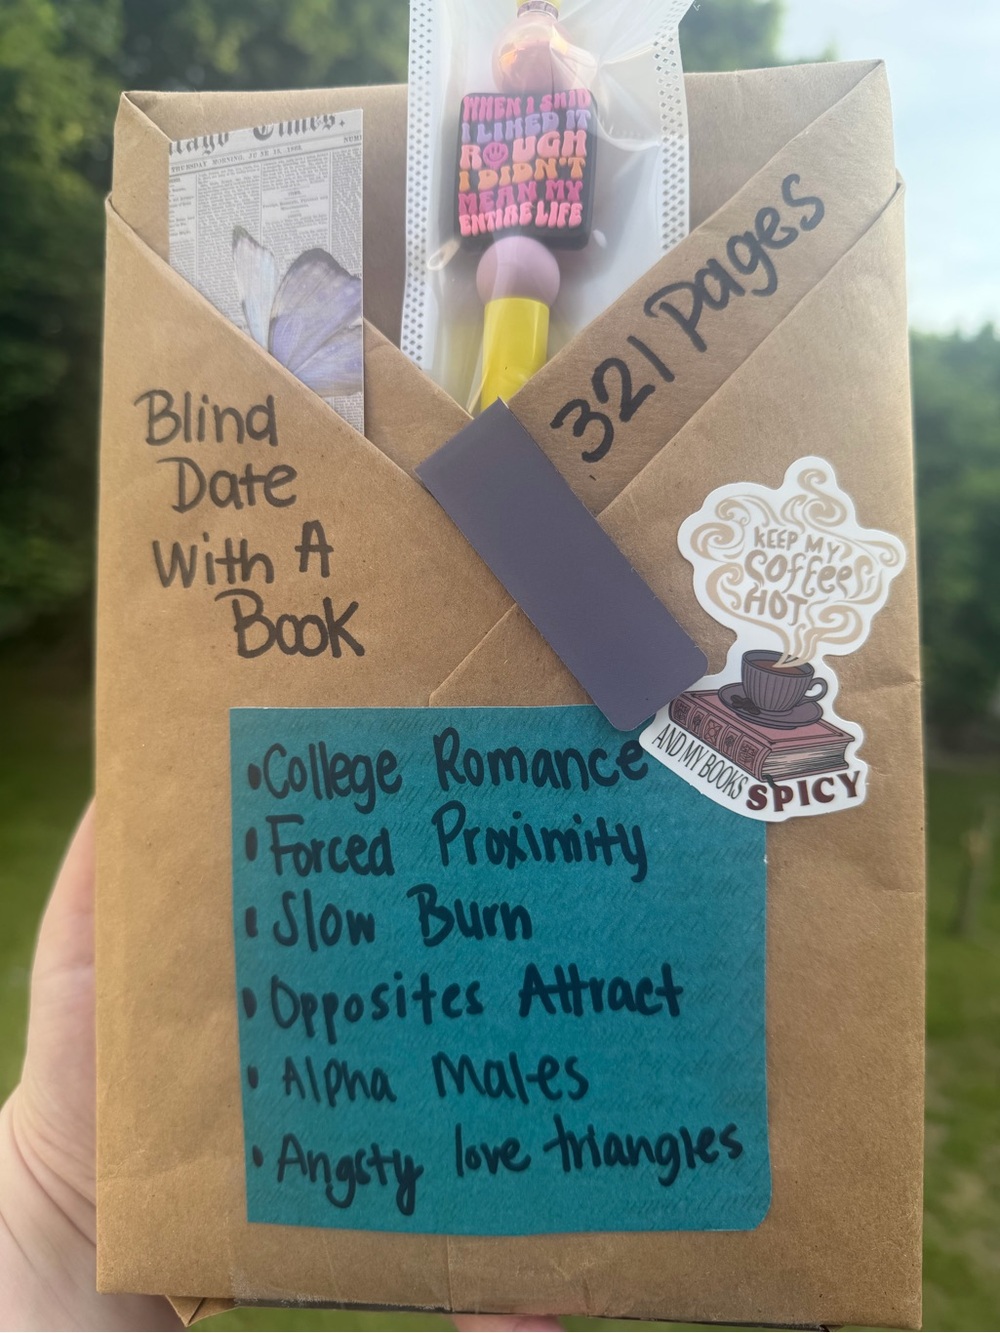 cago Times.
THURSDAY MORNING, JUNE 14, 1860.
NUMB
WHEN I SAID
I LIKED IT
ROUGH
I DIDN'T
MEAN MY
ENTIRE LIFE
321 Pages
Blind
Date
With A
Book
KEEP MY
Coffees
HOT,
AND MY BOOKS
SPICY
•College Romance
•Forced Proximity
•Slow Burn
•Opposites Attract
•Alpha Males
•Angsty love triangles